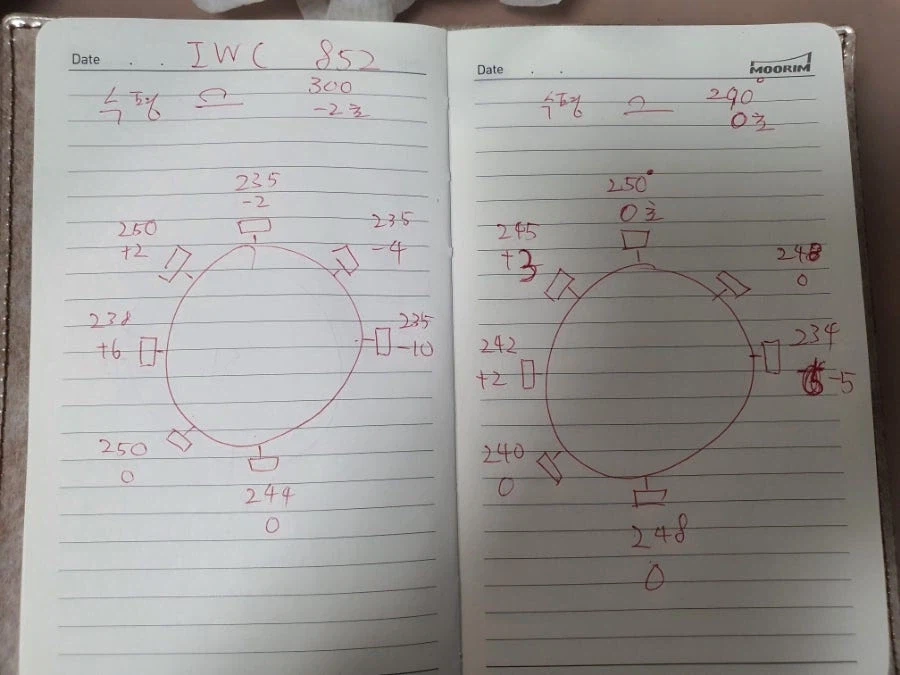 Date . . IWC 852
수평 300
-2초
235
-2
250
+2
235
-4
238
+6
235
-10
250
0
244
0
Date . .
MOORIM
수평 290°
0초
250°
0초
245
+3
248
0
242
+2
234
-5
240
0
248
0